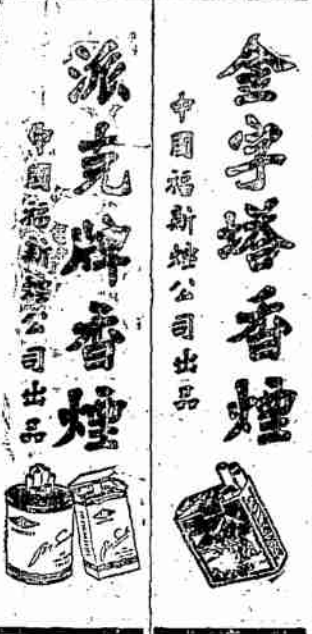 金字塔香煙
中国福新煙公司出品
派克牌香煙
中国福新煙公司出品